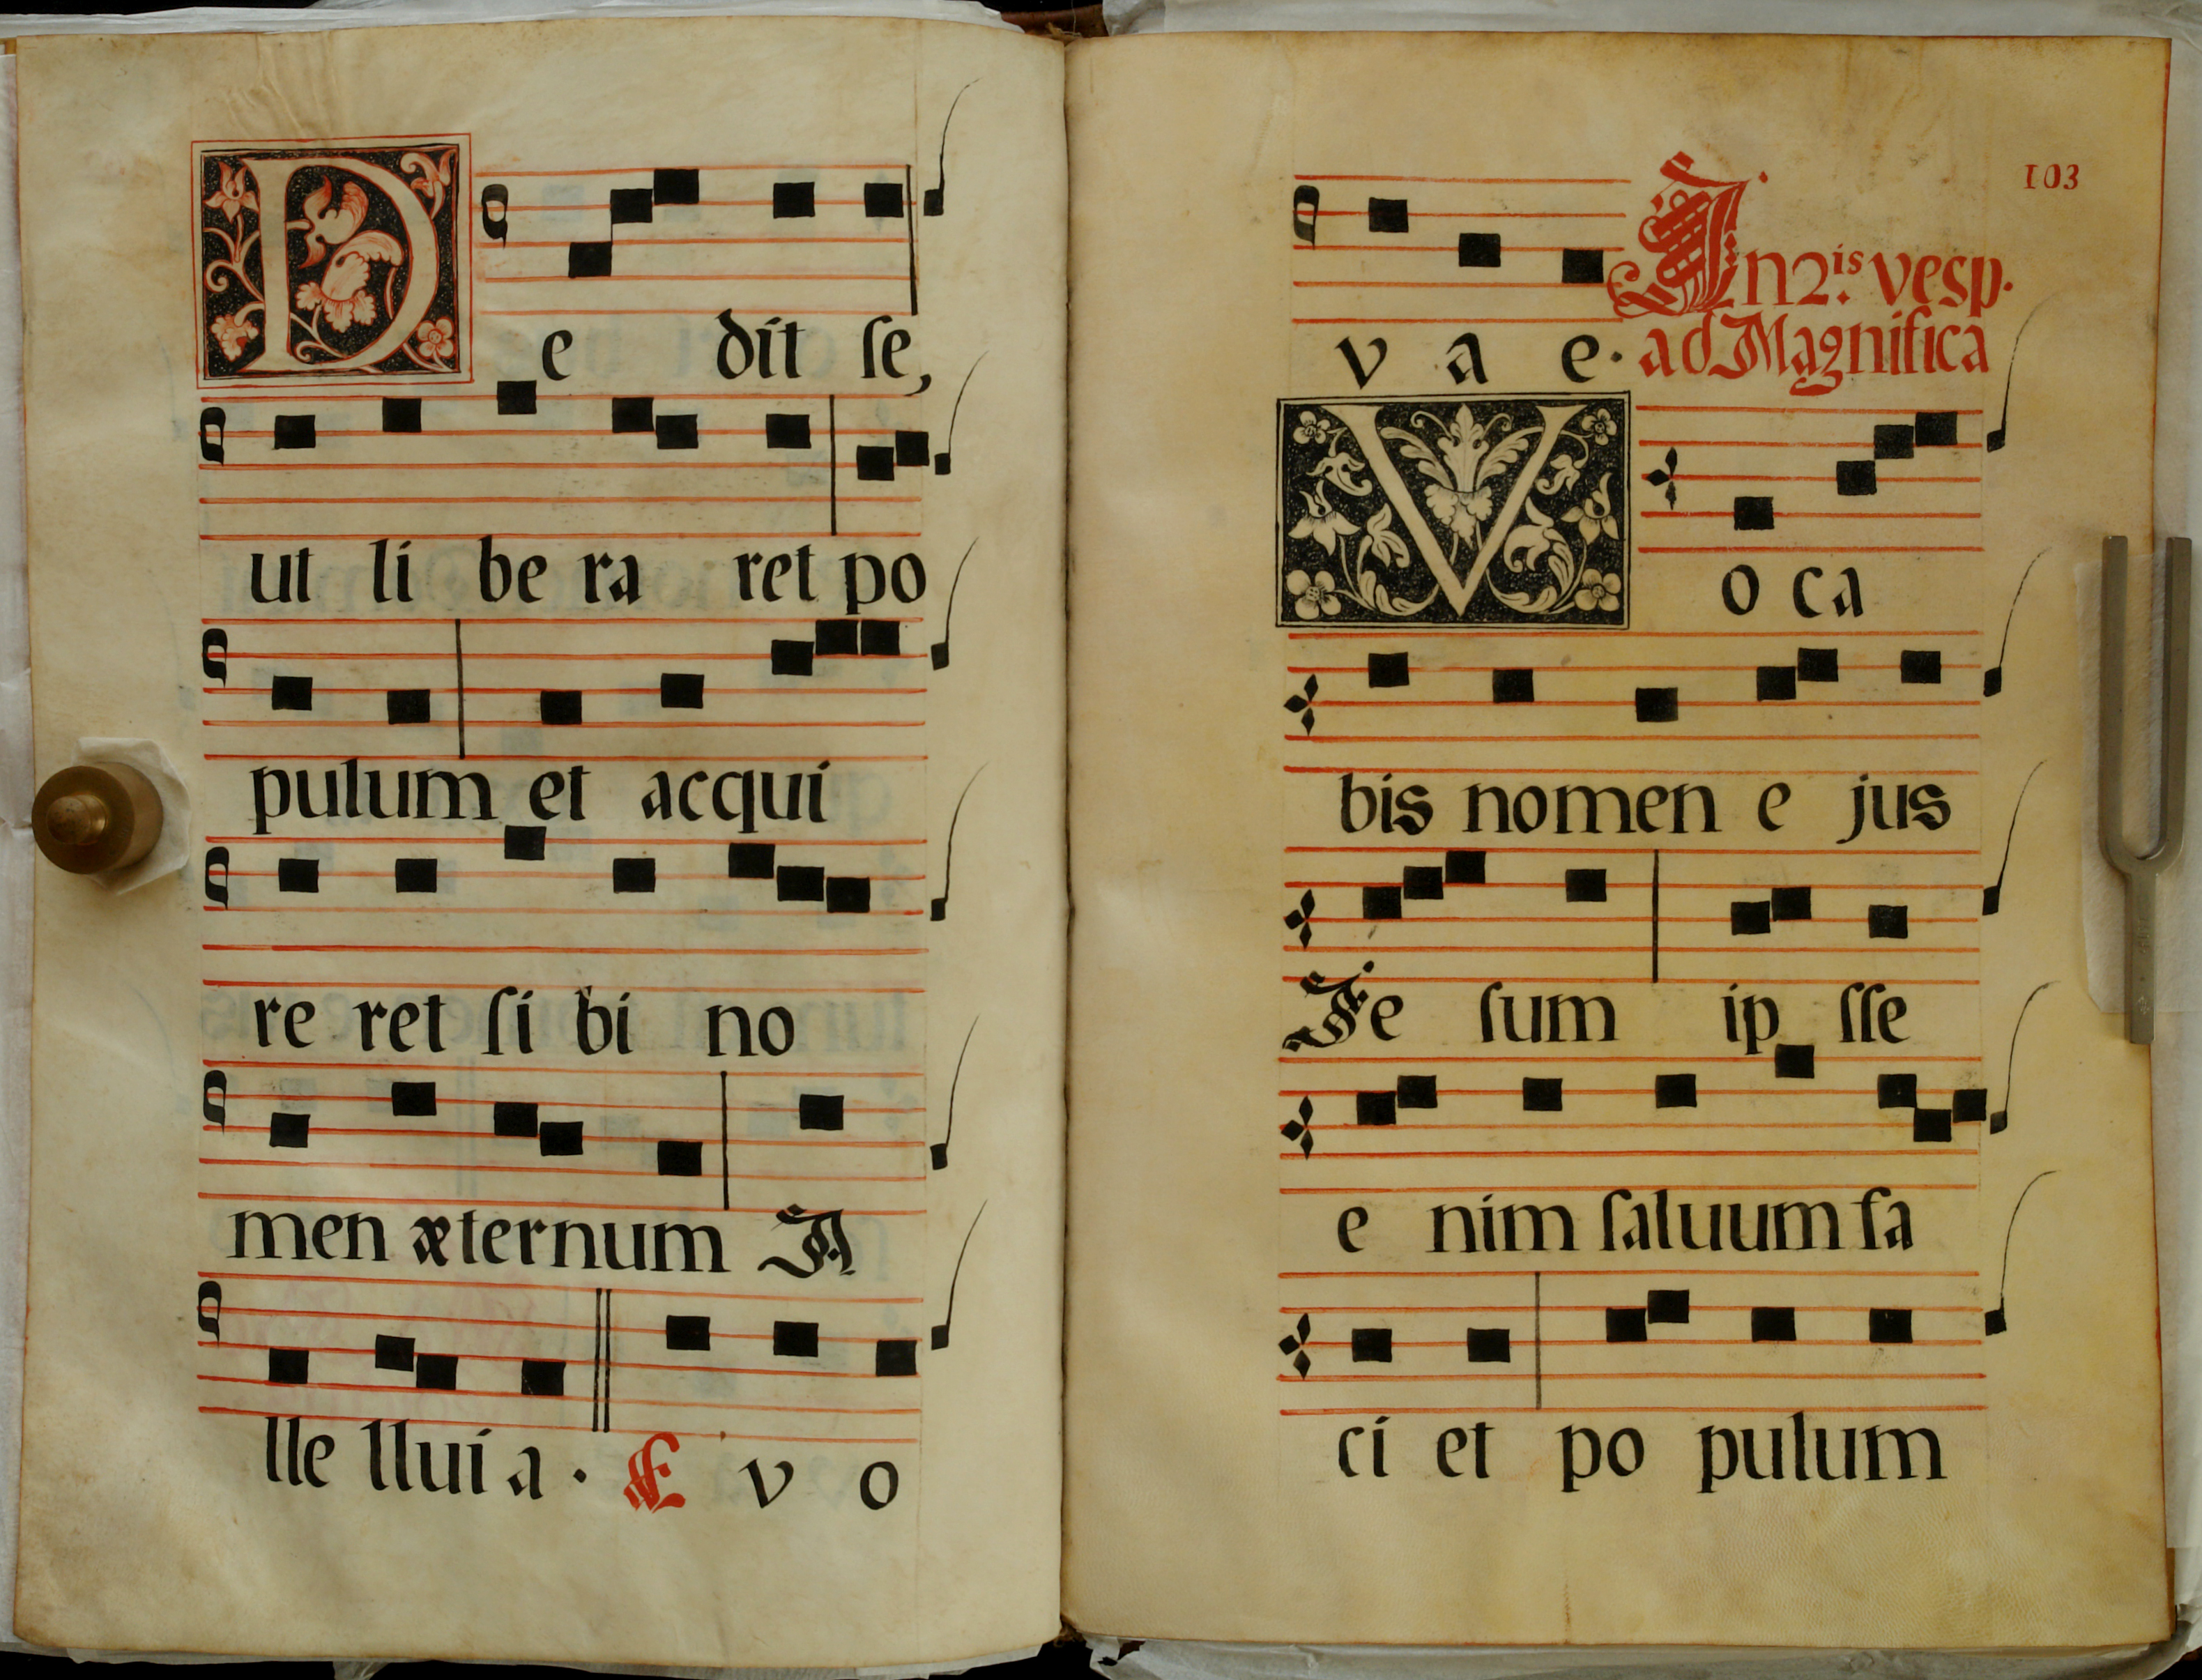 De dit ſe,
ut li be ra ret po
pulum et acqui
re ret ſi bi no
men æternum A
lle llui a . E v o
103
v a e . In 2.is vesp.
ad Magnifica
Vo ca
bis nomen e jus
Je ſum ip ſſe
e nim ſaluum fa
ci et po pulum